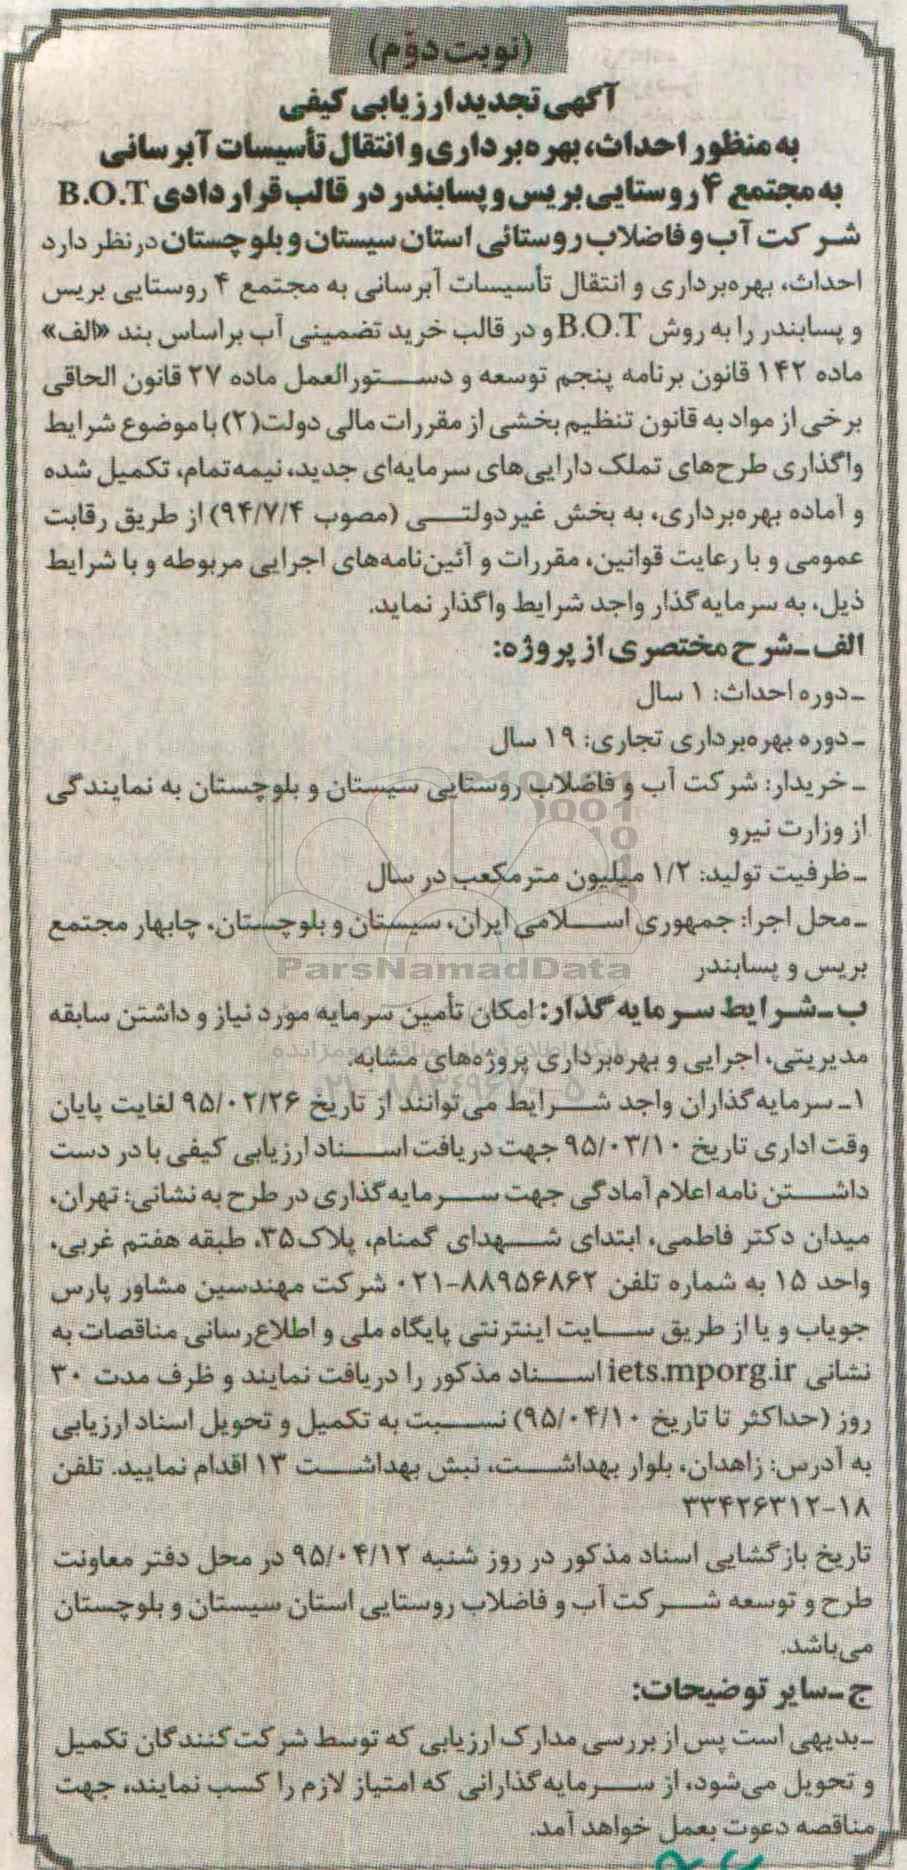 (نوبت دوّم)
آگهی تجدید ارزیابی کیفی
به منظور احداث، بهره‌برداری و انتقال تأسیسات آبرسانی
به مجتمع ۴ روستایی بریس و پسابندر در قالب قراردادی B.O.T
شرکت آب و فاضلاب روستائی استان سیستان و بلوچستان درنظر دارد
احداث، بهره‌برداری و انتقال تأسیسات آبرسانی به مجتمع ۴ روستایی بریس
و پسابندر را به روش B.O.T و در قالب خرید تضمینی آب براساس بند «الف»
ماده ۱۴۲ قانون برنامه پنجم توسعه و دستورالعمل ماده ۲۷ قانون الحاقی
برخی از مواد به قانون تنظیم بخشی از مقررات مالی دولت(۲) با موضوع شرایط
واگذاری طرح‌های تملک دارایی‌های سرمایه‌ای جدید، نیمه‌تمام، تکمیل شده
و آماده بهره‌برداری، به بخش غیردولتی (مصوب ۹۴/۷/۴) از طریق رقابت
عمومی و با رعایت قوانین، مقررات و آئین‌نامه‌های اجرایی مربوطه و با شرایط
ذیل، به سرمایه‌گذار واجد شرایط واگذار نماید.
الف ـ شرح مختصری از پروژه:
ـ دوره احداث: ۱ سال
ـ دوره بهره‌برداری تجاری: ۱۹ سال
ـ خریدار: شرکت آب و فاضلاب روستایی سیستان و بلوچستان به نمایندگی
از وزارت نیرو
ـ ظرفیت تولید: ۱/۲ میلیون مترمکعب در سال
ـ محل اجرا: جمهوری اسلامی ایران، سیستان و بلوچستان، چابهار مجتمع
ParsNamadData
بریس و پسابندر
ب ـ شرایط سرمایه گذار: امکان تأمین سرمایه مورد نیاز و داشتن سابقه
مدیریتی، اجرایی و بهره‌برداری پروژه‌های مشابه.
۰۲۱-۸۸۳۴۹۶۷۰-۵
۱ـ سرمایه‌گذاران واجد شرایط می‌توانند از تاریخ ۹۵/۰۲/۲۶ لغایت پایان
وقت اداری تاریخ ۹۵/۰۳/۱۰ جهت دریافت اسناد ارزیابی کیفی با در دست
داشتن نامه اعلام آمادگی جهت سرمایه‌گذاری در طرح به نشانی: تهران،
میدان دکتر فاطمی، ابتدای شهدای گمنام، پلاک۳۵، طبقه هفتم غربی،
واحد ۱۵ به شماره تلفن ۸۸۹۵۶۸۶۲-۰۲۱ شرکت مهندسین مشاور پارس
جویاب و یا از طریق سایت اینترنتی پایگاه ملی و اطلاع‌رسانی مناقصات به
نشانی iets.mporg.ir اسناد مذکور را دریافت نمایند و ظرف مدت ۳۰
روز (حداکثر تا تاریخ ۹۵/۰۴/۱۰) نسبت به تکمیل و تحویل اسناد ارزیابی
به آدرس: زاهدان، بلوار بهداشت، نبش بهداشت ۱۳ اقدام نمایید. تلفن
۱۸-۳۳۴۲۶۳۱۲
تاریخ بازگشایی اسناد مذکور در روز شنبه ۹۵/۰۴/۱۲ در محل دفتر معاونت
طرح و توسعه شرکت آب و فاضلاب روستایی استان سیستان و بلوچستان
می‌باشد.
ج ـ سایر توضیحات:
ـ بدیهی است پس از بررسی مدارک ارزیابی که توسط شرکت‌کنندگان تکمیل
و تحویل می‌شود، از سرمایه‌گذارانی که امتیاز لازم را کسب نمایند، جهت
مناقصه دعوت بعمل خواهد آمد.